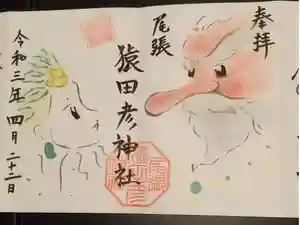 奉拝
尾張
猿田彦神社
令和三年四月二十二日